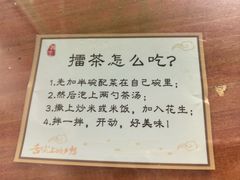 擂茶怎么吃?
1.先加半碗配菜在自己碗里;
2.然后泡上两勺茶汤;
3.撒上炒米或米饭,加入花生;
4.拌一拌,开动,好美味!
舌尖上的乡愁